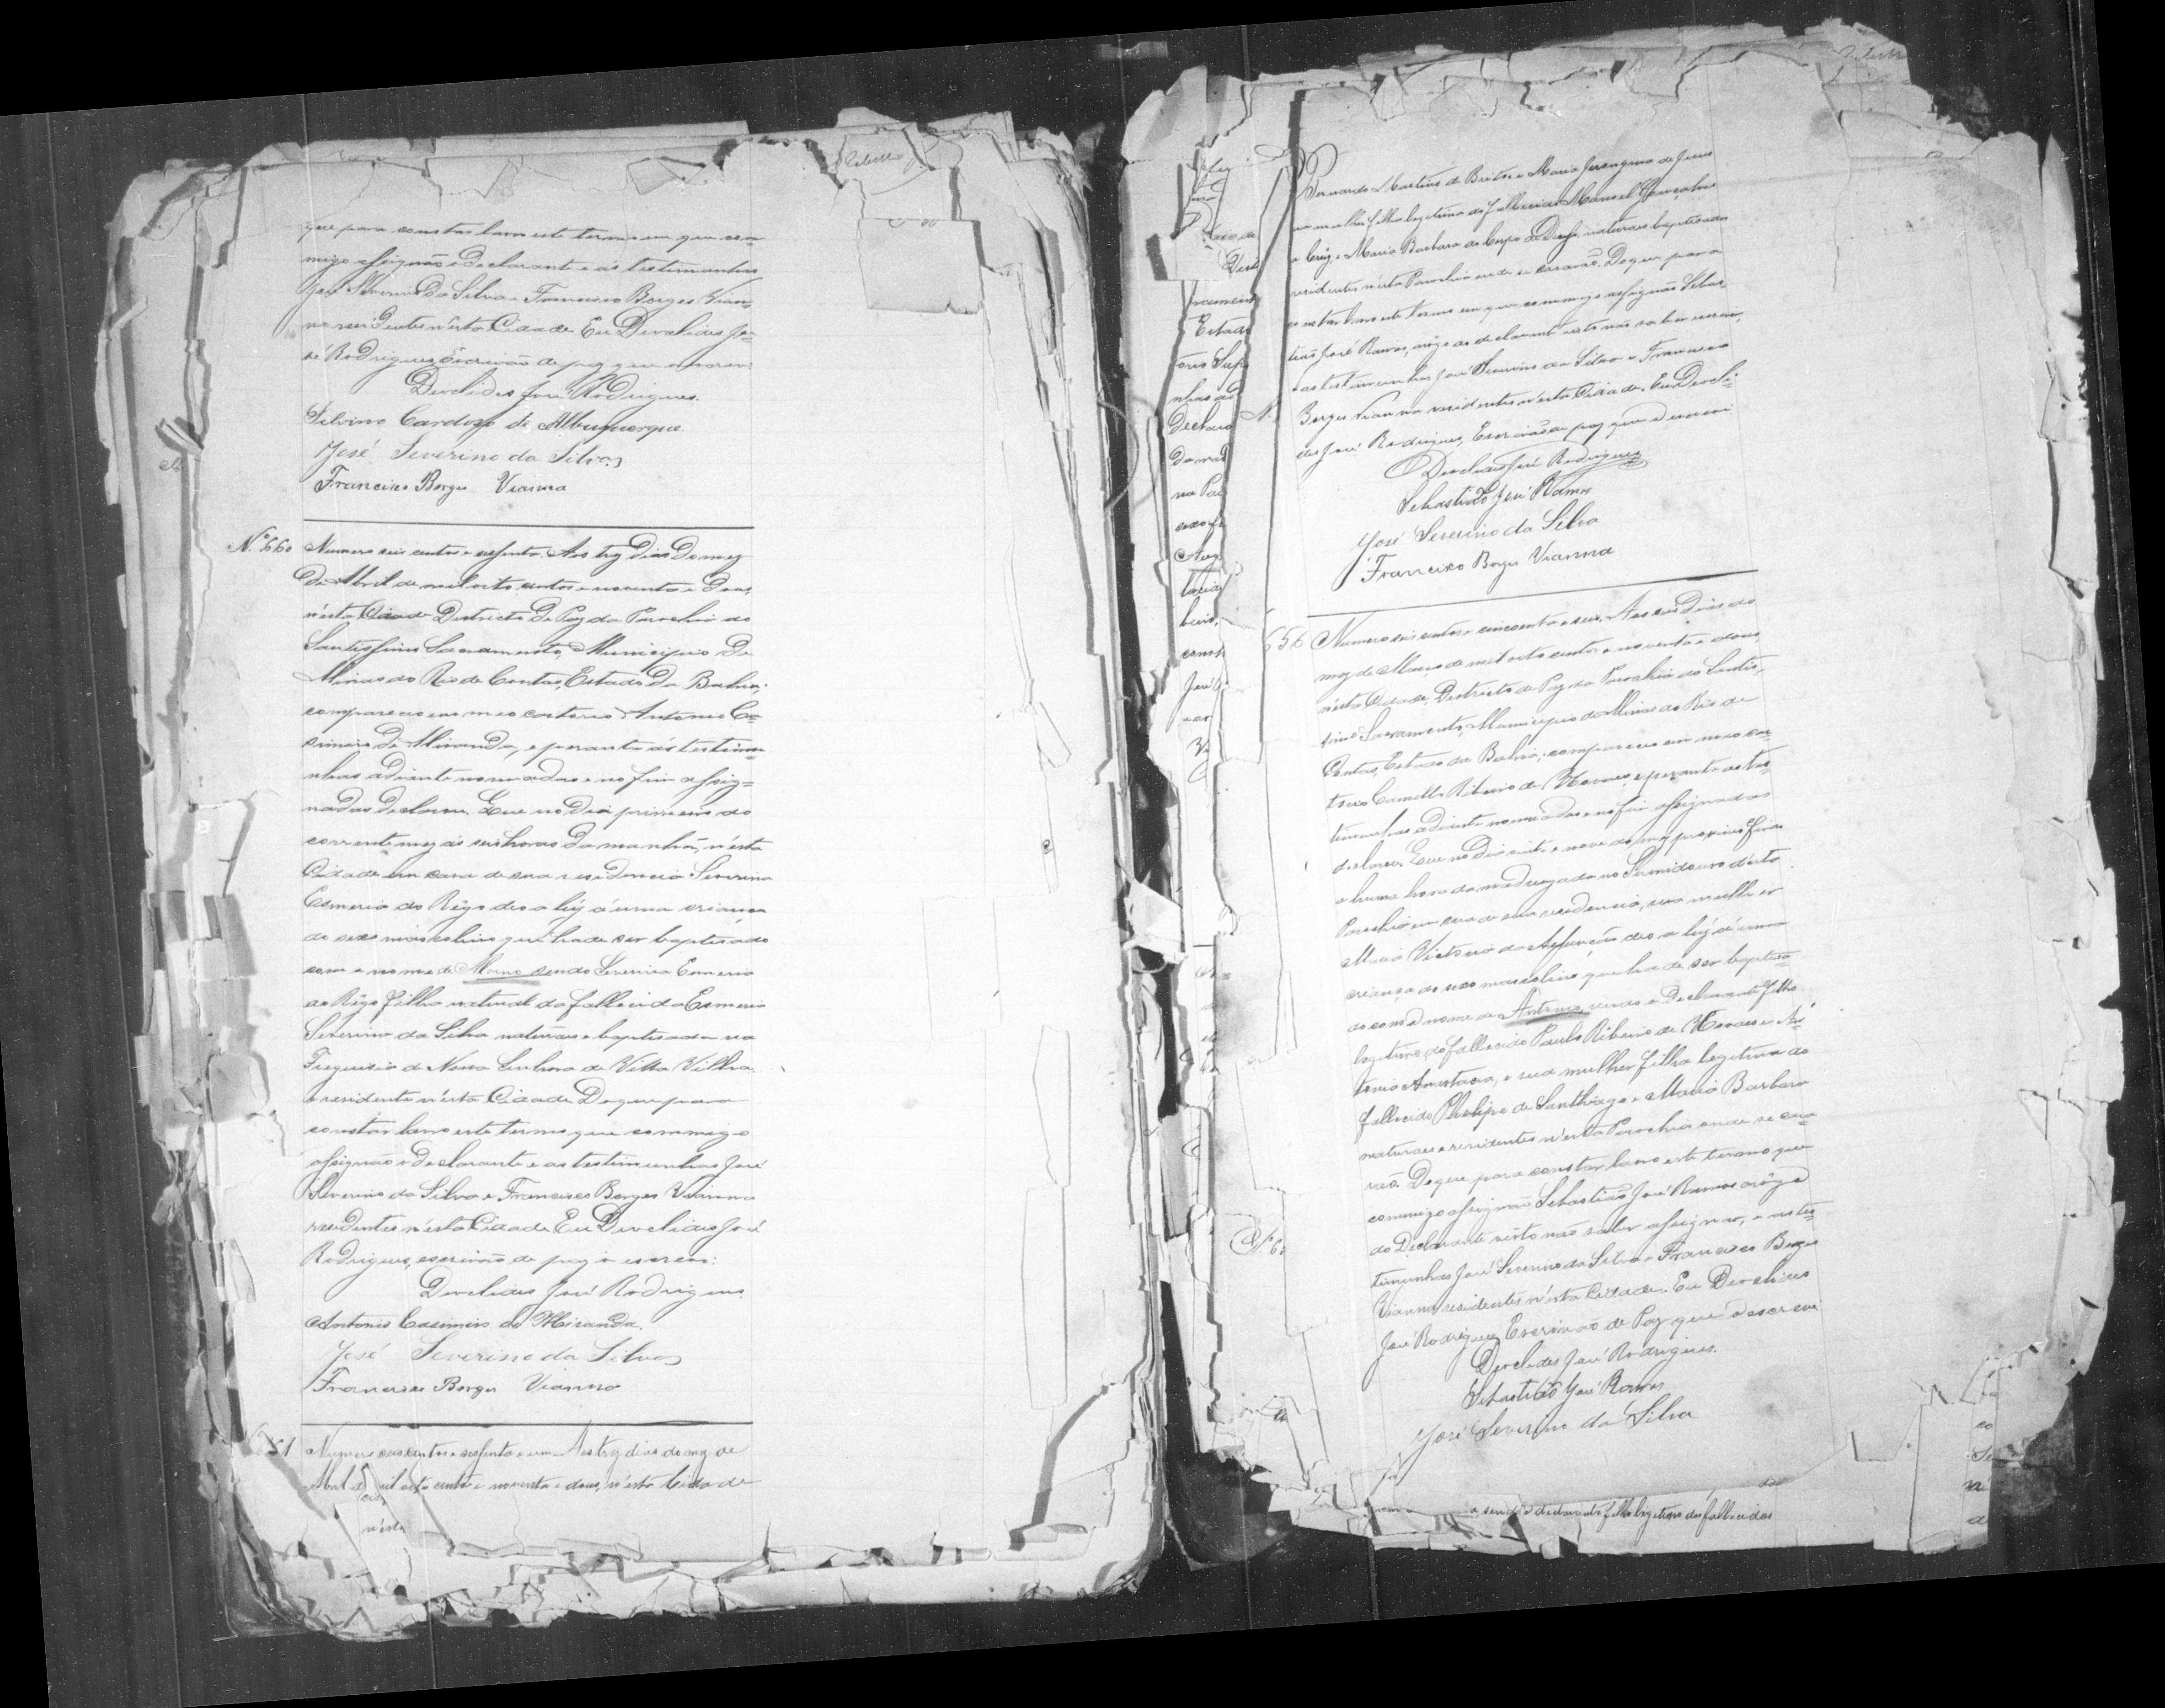 Rebello
que para constar lavro este termo em que com-
migo assignão o declarante e ás testimunhas
José Severino da Silva e Francisco Borges Vian-
na residentes n'esta Cidade. Eu Deoclides Jo-
sé Rodrigues, Escrivão de paz que o escrevi.
Deoclides José Rodrigues.
Silvino Cardozo de Albuquerque.
José Severino da Silva
Francisco Borges Vianna
N.º 660 Numero seis centos e sessenta. Aos trez dias do mez
de Abril de mil oito centos e noventa e dous,
n'esta Cidade Districto de Paz da Parochia do
Santissimo Sacramento, Municipio de
Minas do Rio de Contas, Estado da Bahia;
compareceo em meo cartorio Antonio Ca-
simiro de Miranda, e perante ás testimu-
nhas adiante nomeadas e no fim assig-
nadas declarou. Que no dia primeiro do
corrente mez ás seis horas da manhã, n'esta
Cidade em casa de sua residencia Severina
Esmeria do Rêgo deo a lúz á uma criança
do sexo masculino que hade ser baptisado
com o nome de sendo Severina Esmeria
do Rêgo filha natural da fallecida Esmeria
Severina da Silva naturaes e baptisada na
Freguezia de Nossa Senhora de Villa Velha
e residente n'esta Cidade. Do que para
constar lavro este termo que commigo
assignão o declarante e as testimunhas José
Severino da Silva e Francisco Borges Vianna
residentes n'esta Cidade. Eu Deoclides José
Rodrigues, escrivão de paz o escrevi.
Deoclides José Rodrigues.
Antonio Casimiro de Miranda.
José Severino da Silva
Francisco Borges Vianna
Numero seis centos e sessenta e um. Aos trez dias do mez de
Abril de mil oito centos e noventa e dous, n'esta Cidade
n'esta
Bernardo Martins de Britto e Maria Jeronyma de Jesus
sua mulher filha legitima do fallecido Manoel Gonçalves
da Cruz e Maria Barbara do naturaes baptisados
residentes n'esta Parochia onde se casarão. Do que para
constar lavro este termo em que commigo assignão Sebas-
tião José Ramos, arôgo do declarante visto não saber escrever,
e as testimunhas José Severino da Silva e Francisco
Borges Vianna residentes n'esta Cidade. Eu Deocli-
des José Rodrigues, Escrivão de paz que o escrevi
Deoclides José Rodrigues
Sebastião José Ramos
José Severino da Silva
Francisco Borges Vianna
656 Numero seis centos e cincoenta e seis. Aos seis dias do
mez de Março de mil oito centos e noventa e dous
n'esta Cidade, Districto de Paz da Parochia do Santis-
simo Sacramento, Municipio de Minas do Rio de
Contas, Estado da Bahia; compareceo em meo car-
torio Camillo Ribeiro de Novaes, e perante as tes-
timunhas adiante nomeadas e no fim assignadas
declarou. Que no dia vinte e nove do mez proximo findo
a huma hora da madrugada no Sumidouro d'esta
Parochia em casa de sua residencia, sua mulher
Maria Victoria da Assumpção deo a lúz á uma
criança do sexo masculino que ha de ser baptisa-
do com o nome de Antonio, sendo o declarante filho
legitimo do fallecido Paulo Ribeiro de Novaes e An-
tonia Anastacia, e sua mulher filha legitima do
fallecido Phelipe de Santhiago e Maria Barbara
naturaes e residentes n'esta Parochia onde se casa-
rão. Do que para constar lavro este termo que
commigo assignão Sebastião José Ramos arôgo
do Declarante visto não saber assignar, e as tes-
timunhas José Severino da Silva e Francisco Borges
Vianna residentes n'esta Cidade. Eu Deoclides
José Rodrigues, Escrivão de Paz que o escrevi
Deoclides José Rodrigues.
Sebastião José Ramos
José Severino da Silva
sendo o declarante filho legitimo dos fallecidos